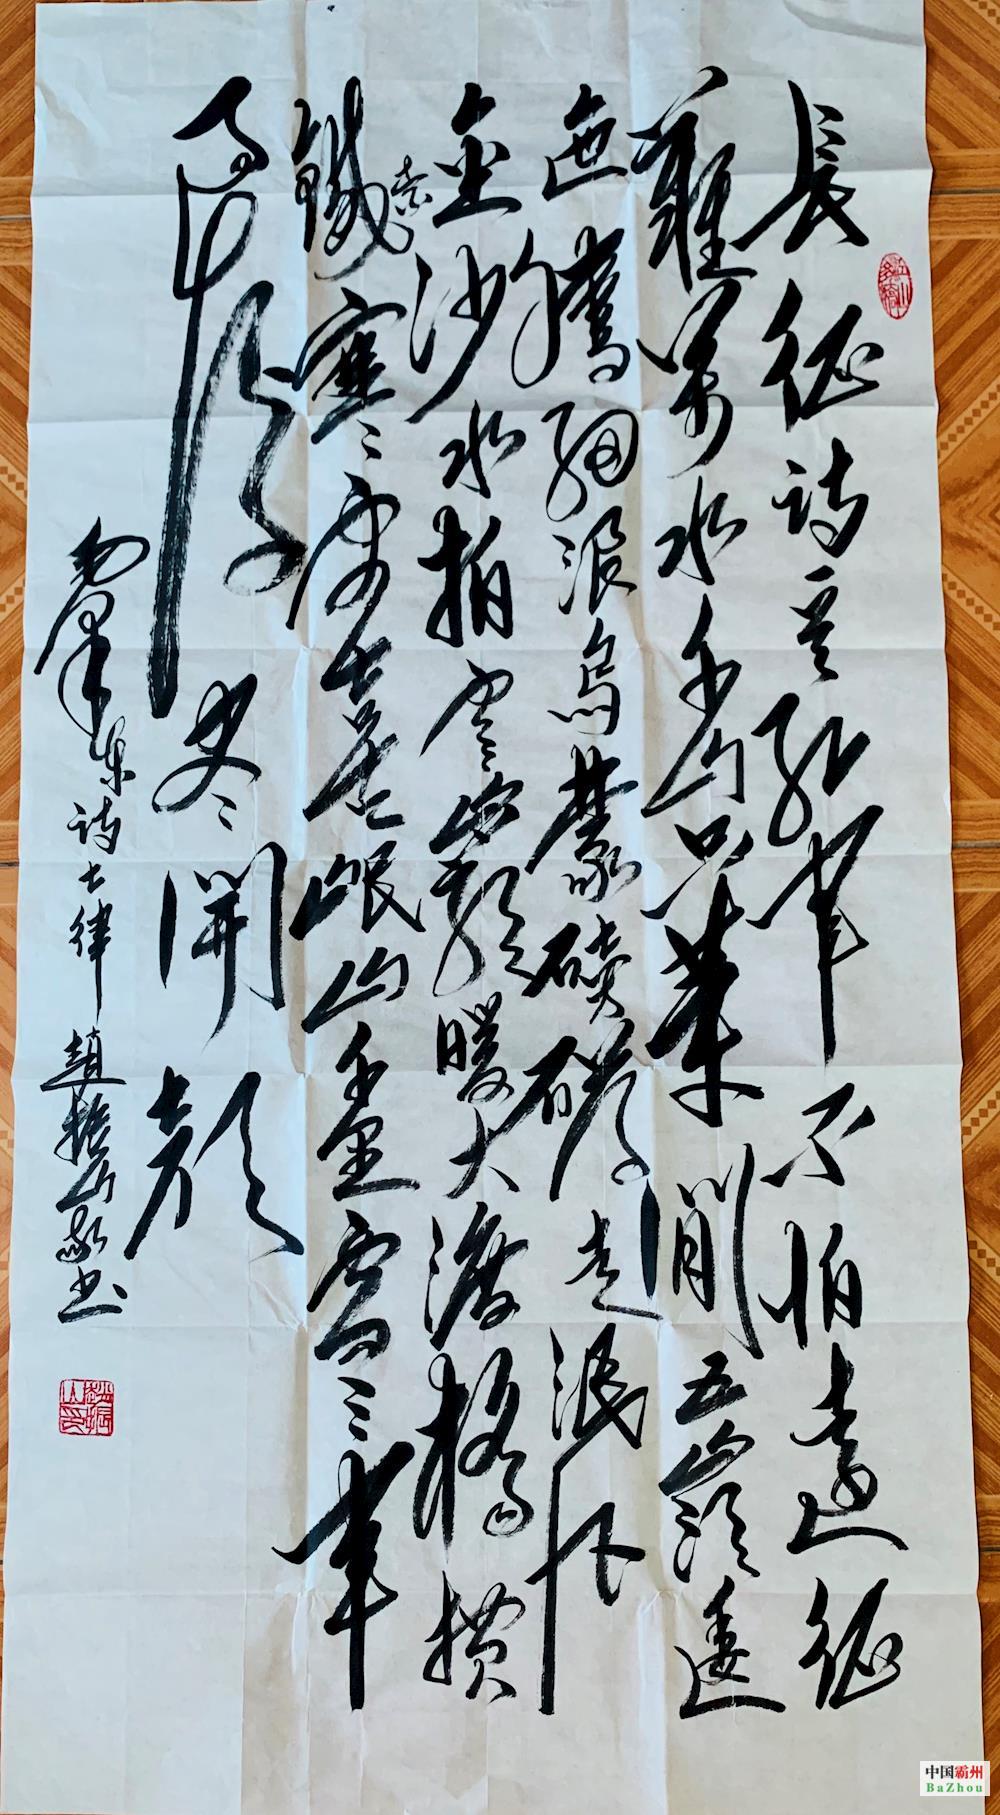 長征詩紅軍不怕遠征
難萬水千山只等閒五嶺逶
迤騰細浪烏蒙磅礴走泥丸
金沙水拍雲崖暖大渡橋横
鐵索寒更喜岷山千里雪三軍
過後盡開顏
毛澤東詩七律 趙振山敬书
趙振山印
中国霸州
BaZhou